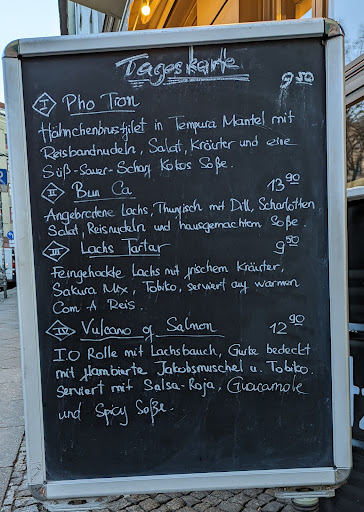 Tageskarte
I Pho Tron 9.50
Hähnchenbrustfilet in Tempura Mantel mit
Reisbandnudeln, Salat, Kräuter und eine
Süß-Sauer-Scharf Kokos Soße.
II Bun Ca 13.90
Angebratene Lachs, Thunfisch mit Dill, Scharlotten
Salat, Reisnudeln und hausgemachtem Soße.
III Lachs Tartar 9.50
Feingehackte Lachs mit frischem Kräuter,
Sakura Mix, Tobiko, serviert auf warmen
Com-A Reis.
IV Vulcano of Salmon 12.90
I.O Rolle mit Lachsbauch, Gurke bedeckt
mit flambierte Jakobsmuschel u. Tobiko.
serviert mit Salsa-Roja, Guacamole
und Spicy Soße.